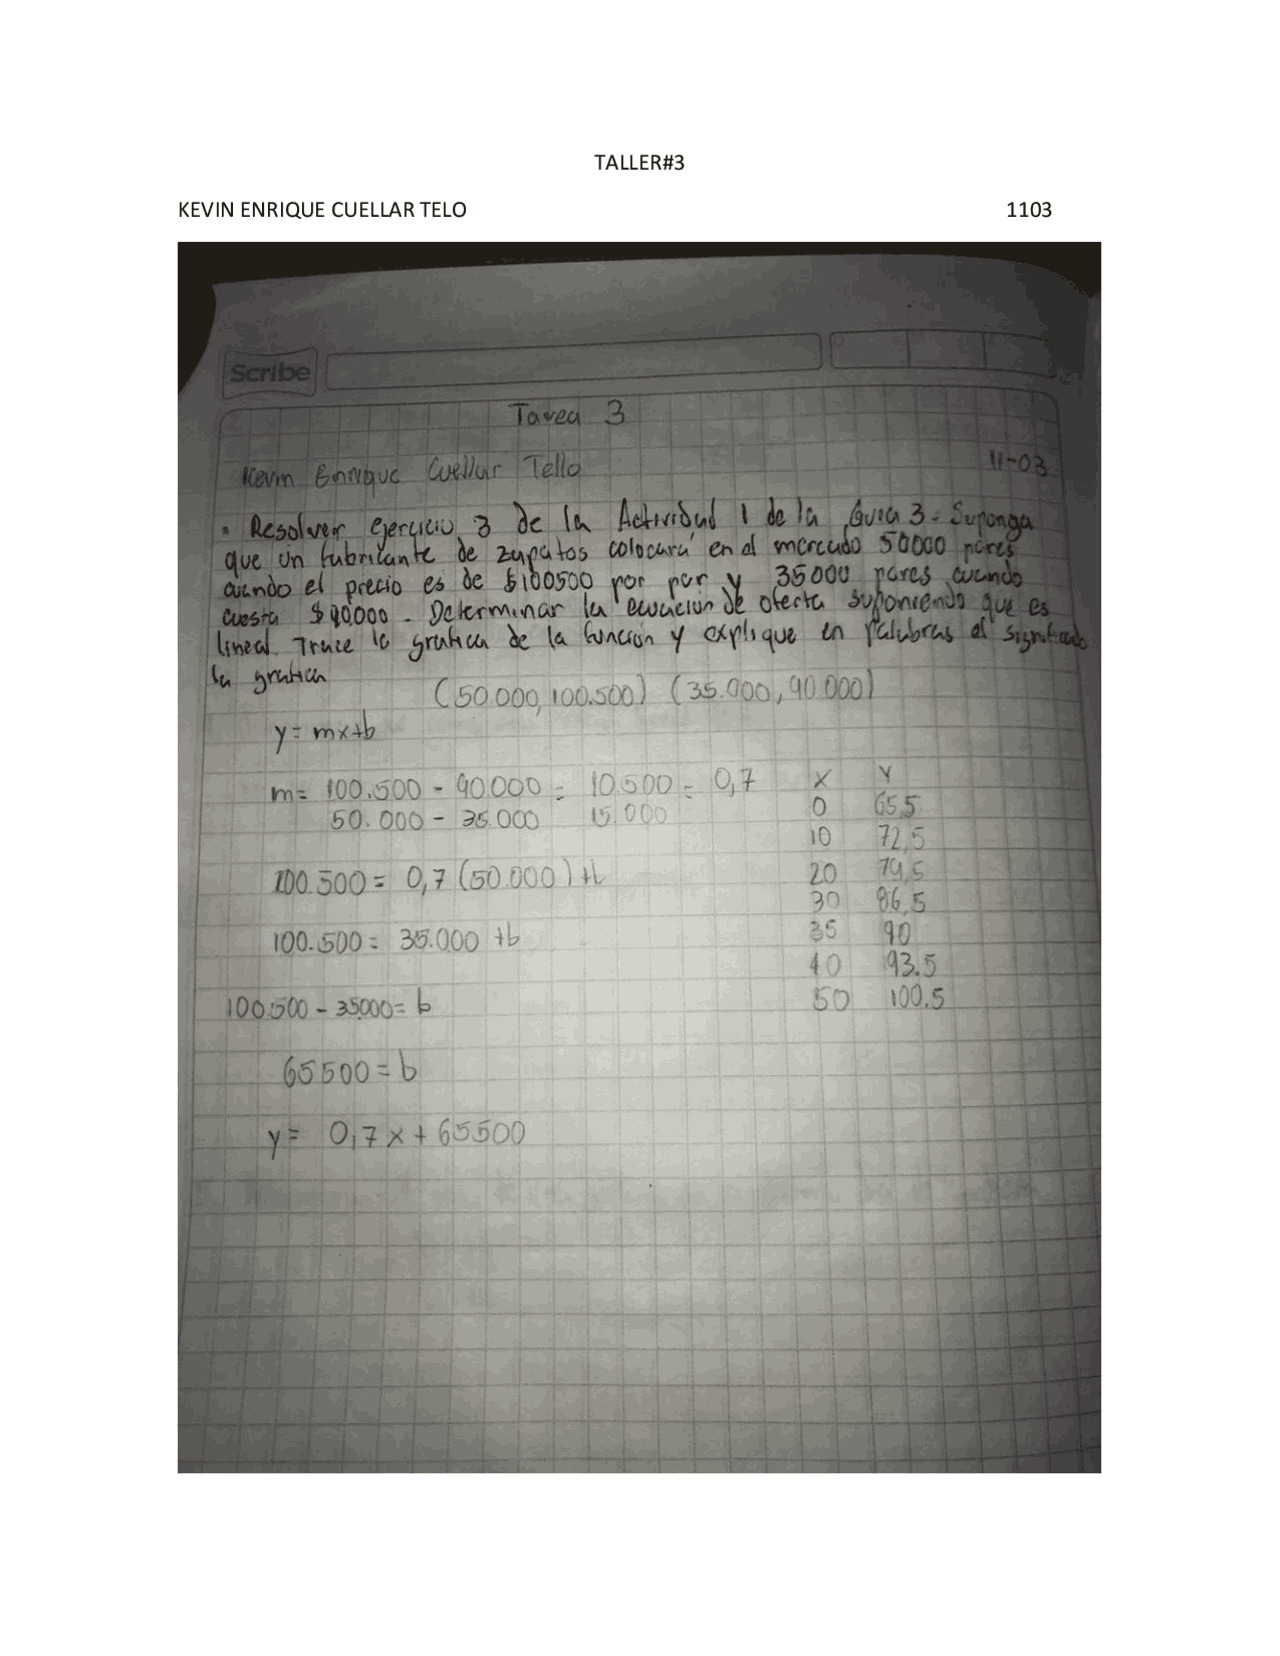 TALLER#3
KEVIN ENRIQUE CUELLAR TELO 1103
Scribe
Tarea 3
Kevin Enrique Cuellar Tello 11-03
• Resolver ejercicio 3 de la Actividad 1 de la Guia 3 - Suponga
que un fabricante de zapatos colocará en el mercado 50000 pares
cuando el precio es de $100500 por par y 35000 pares cuando
cuesta $90.000 - Determinar la ecuación de oferta suponiendo que es
lineal. Trace la grafica de la función y explique en palabras el significado
la grafica
(50.000, 100.500) (35.000, 90.000)
y = mx+b
m = 100.500 - 90.000 = 10.500 = 0,7
50.000 - 35.000 15.000
100.500 = 0,7 (50.000) + b
100.500 = 35.000 + b
100.500 - 35000 = b
65500 = b
y = 0,7x + 65500
X Y
0 65.5
10 72,5
20 79,5
30 86,5
35 90
40 93.5
50 100.5